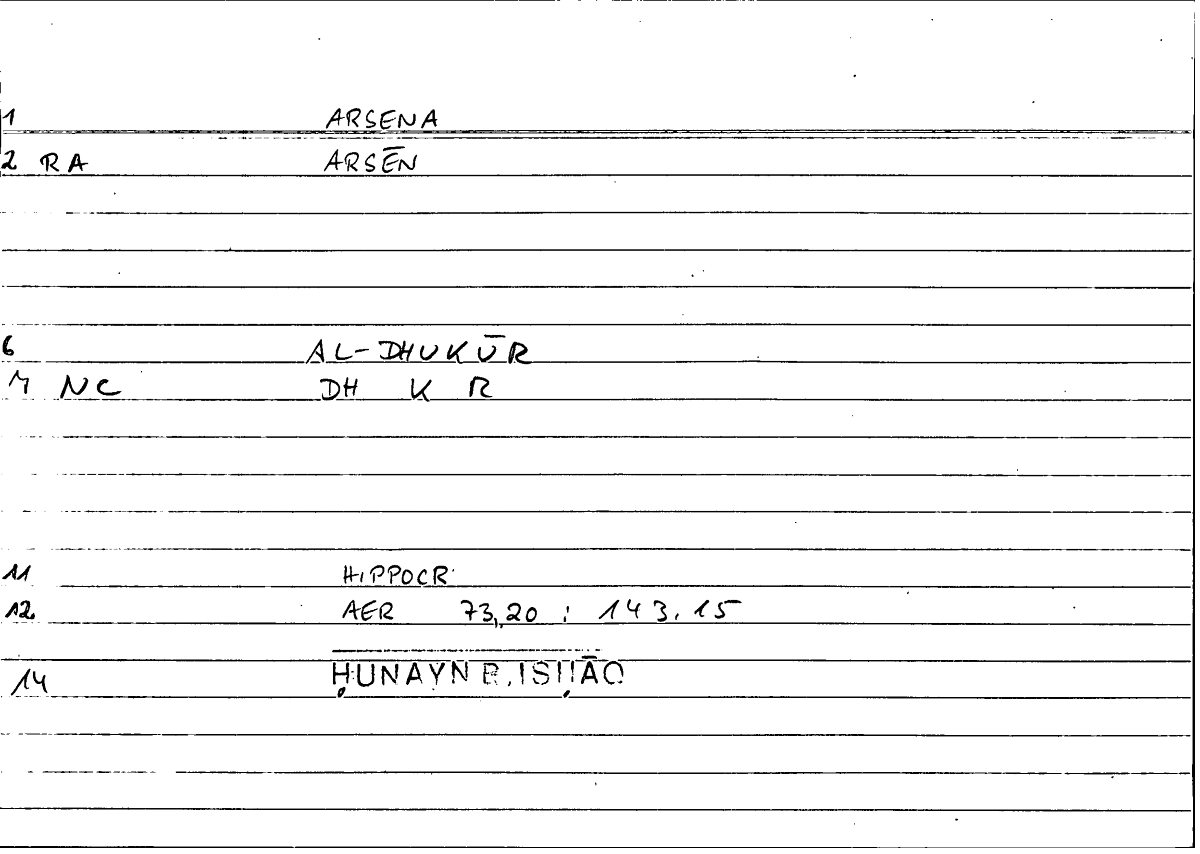 1 ARSENA
2 RA ARSĒN
6 AL-DHUKŪR
7 NC DH K R
11 HIPPOCR
12 AER 73,20 : 143.15
14 ḤUNAYN B. ISḤĀQ